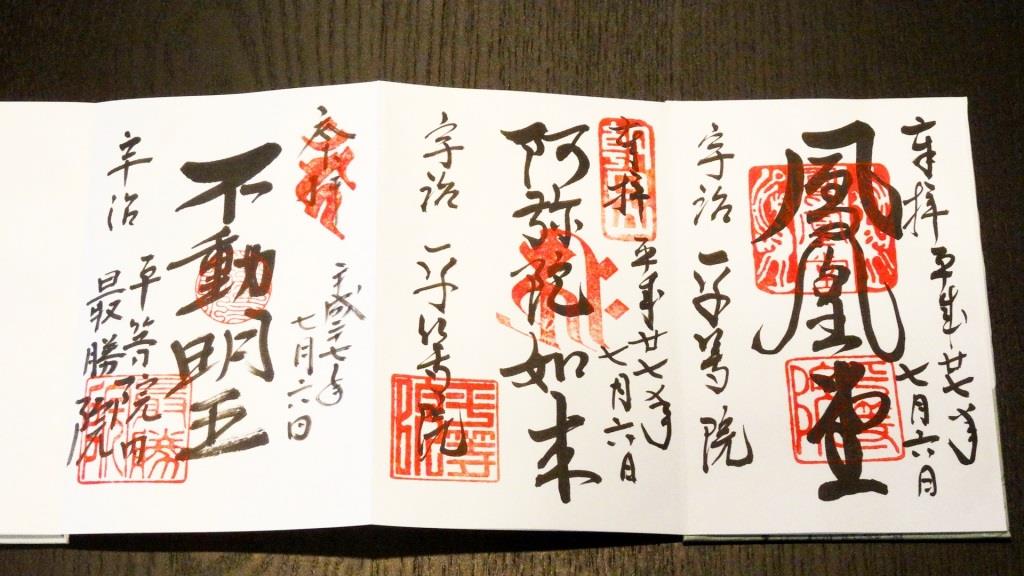 奉拝
平成廿七年
七月六日
鳳凰堂
宇治 平等院
奉拝
平成廿七年
七月六日
阿弥陀如来
宇治 平等院
平等院
奉拝
平成二十七年
七月六日
不動明王
宇治 平等院内
最勝院